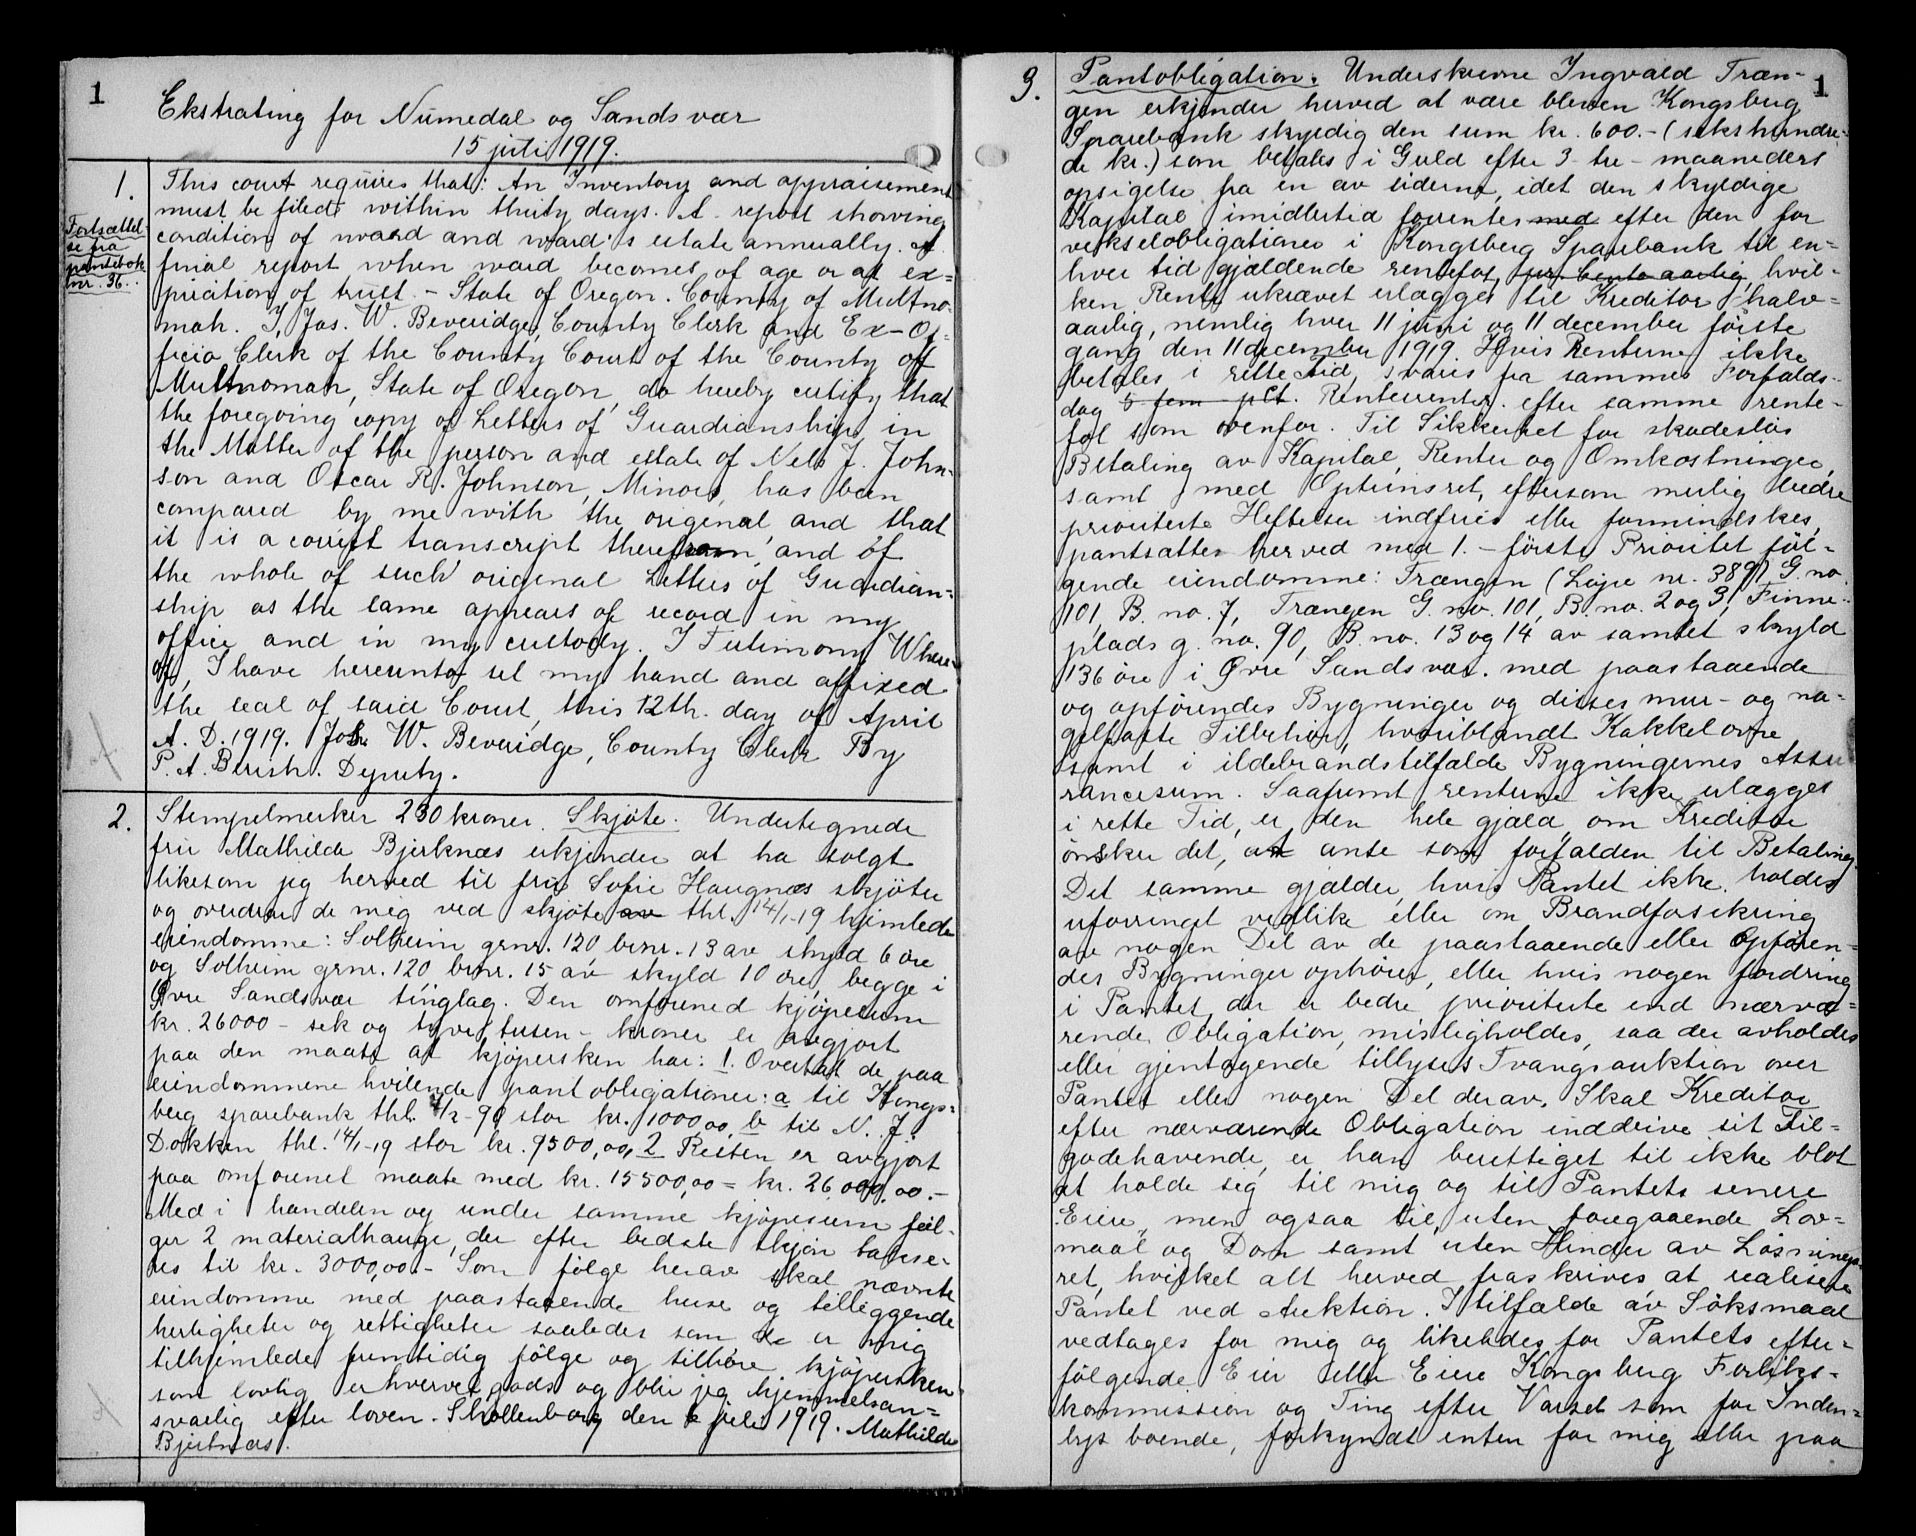 1
Ekstrating for Numedal og Sandsvær
15 juli 1919.
1.
Fortsættel-
se fra
pantebok
nr. 36.
This court requires that: An Inventory and appraisement
must be filed within thirty days. A report showing
condition of ward and ward's estate annually. A
final report when ward becomes of age or at ex=
piration of trust. - State of Oregon. County of Multno-
mah. I, Jas. W. Beveridge, County Clerk and Ex-Of-
ficio Clerk of the County Court of the County of
Multnomah, State of Oregon, do hereby certify that
the foregoing copy of Letters of Guardianship in
the Matter of the person and estate of Nels J. John-
son and Oscar R. Johnson, Minors, has been
compared by me with the original, and that
it is a correct transcript therefrom, and of
the whole of such original Letters of Guardian=
ship as the same appears of record in my
office and in my custody. I Testimony Where-
of, I have hereunto set my hand and affixed
the seal of said Court, this 12th. day of April
A. D. 1919. Jos. W. Beveridge, County Clerk By
P. A. Deputy.
2.
Stempelmerker 230 kroner. Skjøte. Undertegnede
fru Mathilde Bjerknæs erkjender at ha solgt
likesom jeg herved til fru Sofie Haugnæs skjøter
og overdrar de mig ved skjøte av thl. 14/1-19 hjemlede
eiendomme: Solheim grnr. 120, brnr. 13 av skyld 6 øre
og Solheim grnr. 120 brnr. 15 av skyld 10 øre, begge i
Øvre Sandsvær tinglag. Den omforened kjøpesum
kr. 26000 - seks og tyve tusen - kroner er avgjort
paa den maate at kjøpersken har: 1. Overtat de paa
eiendommene hvilende pantobligationer: a til Kongs=
berg sparebank thl. /2-99 stor kr. 1000,00, b til N. J.
Dokken thl. 14/1-19 stor kr. 9500,00, 2 Resten er avgjort
paa omforenet maate med kr. 15500,00 = kr. 26,000,00.-
Med i handelen og under samme kjøpesum føl-
ger 2 materialhauge, der efter bedste skjøn takse-
res til kr. 3000,00.- Som følge herav skal nævnte
eiendomme med paastaaende huse og tilliggende
herligheter og rettigheter saaledes som de er mig
tilhjemlede fremtidig følge og tilhøre kjøpersken
som lovlig erhvervet gods og blir jeg hjemmelsan=
svarlig efter loven. Skollenborg den 6 juli 1919. Mathilde
Bjerknæs.
1
3.
Pantobligation. Underskrevne Ingvald Træn-
gen erkjender herved at være bleven Kongsberg
Sparebank skyldig den sum kr. 600.- (sekshundre-
de kr.) som betales i Guld efter 3- tre - maaneders
opsigelse fra en av siderne, idet den skyldige
Kapital imidlertid forrentes med efter den for
vekselobligationer i Kongsberg Sparebank til en-
hver tid gjældende rentefot, pro Cento aarlig, hvil-
ken Rente ukrævet erlægges til Kreditor halv-
aarlig, nemlig hver 11 juni og 11 december første
gang den 11 december 1919. Hvis Renterne ikke
betales i rette tid, svares fra sammes Forfalds-
dag 5 fem pCt. Rentesrenter efter samme rente-
fot som ovenfor. Til Sikkerhet for skadesløs
Betaling av Kapital, Renter og Omkostninger,
samt med Optrinsret, eftersom mulig bedre
prioriterte Heftelser indfries eller formindskes,
pantsattes herved med 1. - første Prioritet føl-
gende eiendomme: Trængen (Løpe nr. 389) G. no
101, B. no. 7, Trængen G. no. 101, B. no. 2 og 3, Finne-
plads g. no. 90, B. no. 13 og 14 av samlet skyld
136 øre i Øvre Sandsvær. med paastaaende
og opførendes Bygninger og disses mur- og na-
gelfaste Tilbehør, hvoriblandt Kakkelovne
samt i ildebrandstilfælde Bygningernes Assu
rancesum. Saafremt renterne ikke erlægges
i rette Tid, er den hele gjæld, om Kreditor
ønsker det, at anse som forfalden til Betaling.
Det samme gjælder, hvis Pantet ikke holdes
uforringet vedlike eller om Brandforsikring
av nogen Del av de paastaaende eller Opføren-
des Bygninger ophører, eller hvis nogen fordring
i Pantet, der er bedre prioriterte end nærvæ=
rende Obligation, misligholdes, saa der avholdes
eller gjentagende tillyses Tvangsauktion over
Pantet eller nogen Del derav. Skal Kreditor
efter nærværende Obligation inddrive sit Til-
godehavende, er han berettiget til ikke blot
at holde sig til mig og til Pantets senere
Eiere, men ogsaa til, uten foregaaende Lov=
maal og Dom samt uten Hinder av Løsnings-
ret, hvilket alt herved fraskrives at realisere
Pantet ved Auktion. I tilfælde av Søksmaal
vedtages for mig og likeledes for Pantets efter-
følgende Eier eller Eiere Kongsberg Forliks-
kommission og Ting efter Varsel som for Inden-
bys boende, forkyndt enten for mig eller paa